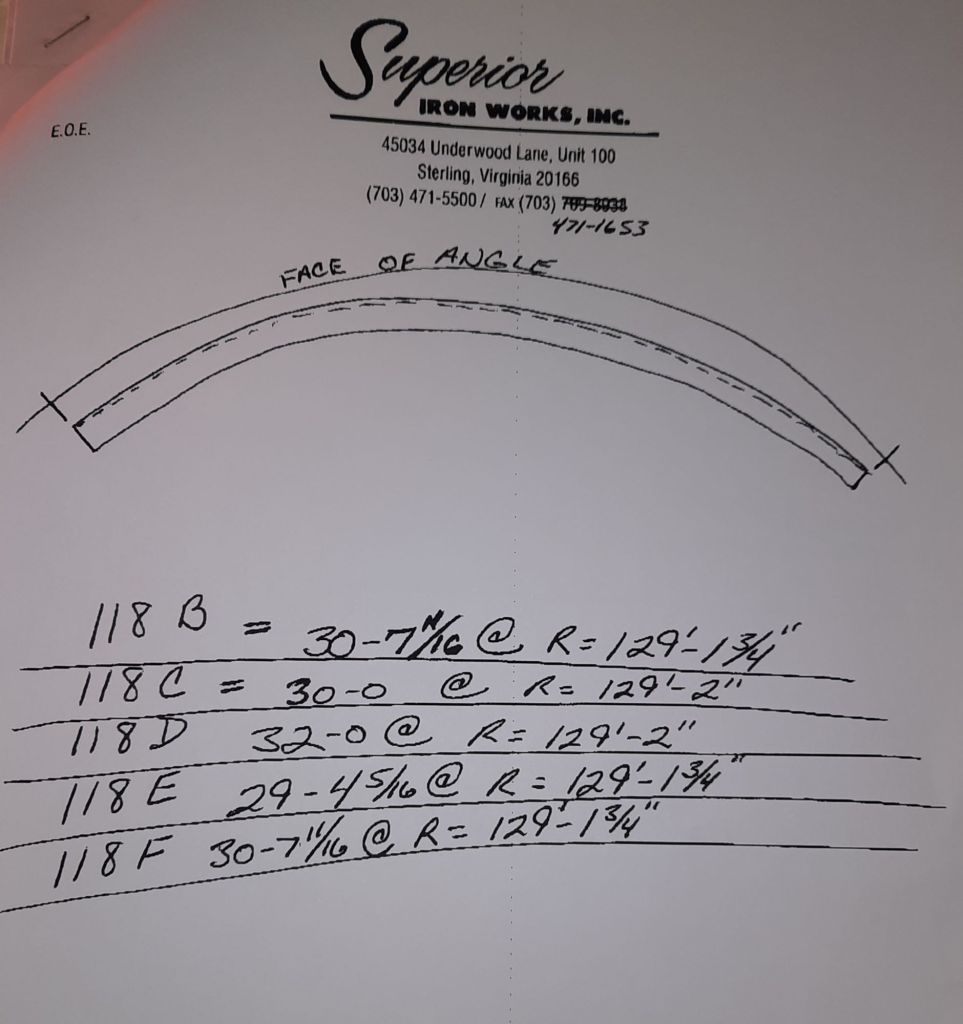 Superior
IRON WORKS, INC.
E.O.E.
45034 Underwood Lane, Unit 100
Sterling, Virginia 20166
(703) 471-5500 / FAX (703) 709-8938
471-1653
FACE OF ANGLE
118 B = 30-7 11/16 @ R= 129'-1 3/4"
118 C = 30-0 @ R= 129'-2"
118 D 32-0 @ R= 129'-2"
118 E 29-4 5/16 @ R= 129'-1 3/4"
118 F 30-7 11/16 @ R= 129'-1 3/4"